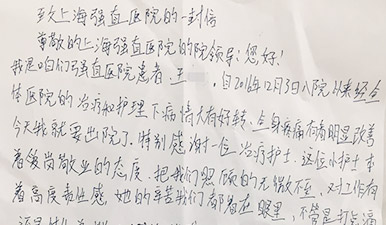 致上海强直医院的一封信
尊敬的上海强直医院的院领导:您好!
我是咱们强直医院患者,王 ,自2016年12月3日入院以来经点
体医院的治疗和护理下病情大有好转、点身疼痛有着明显改善
今天我就要出院了、特别感谢一位治疗护士、这位小护士本
着爱岗敬业的态度、把我们照顾的无微不至、对工作有
着高度责任感、她的辛苦我们都看在眼里,不管是打